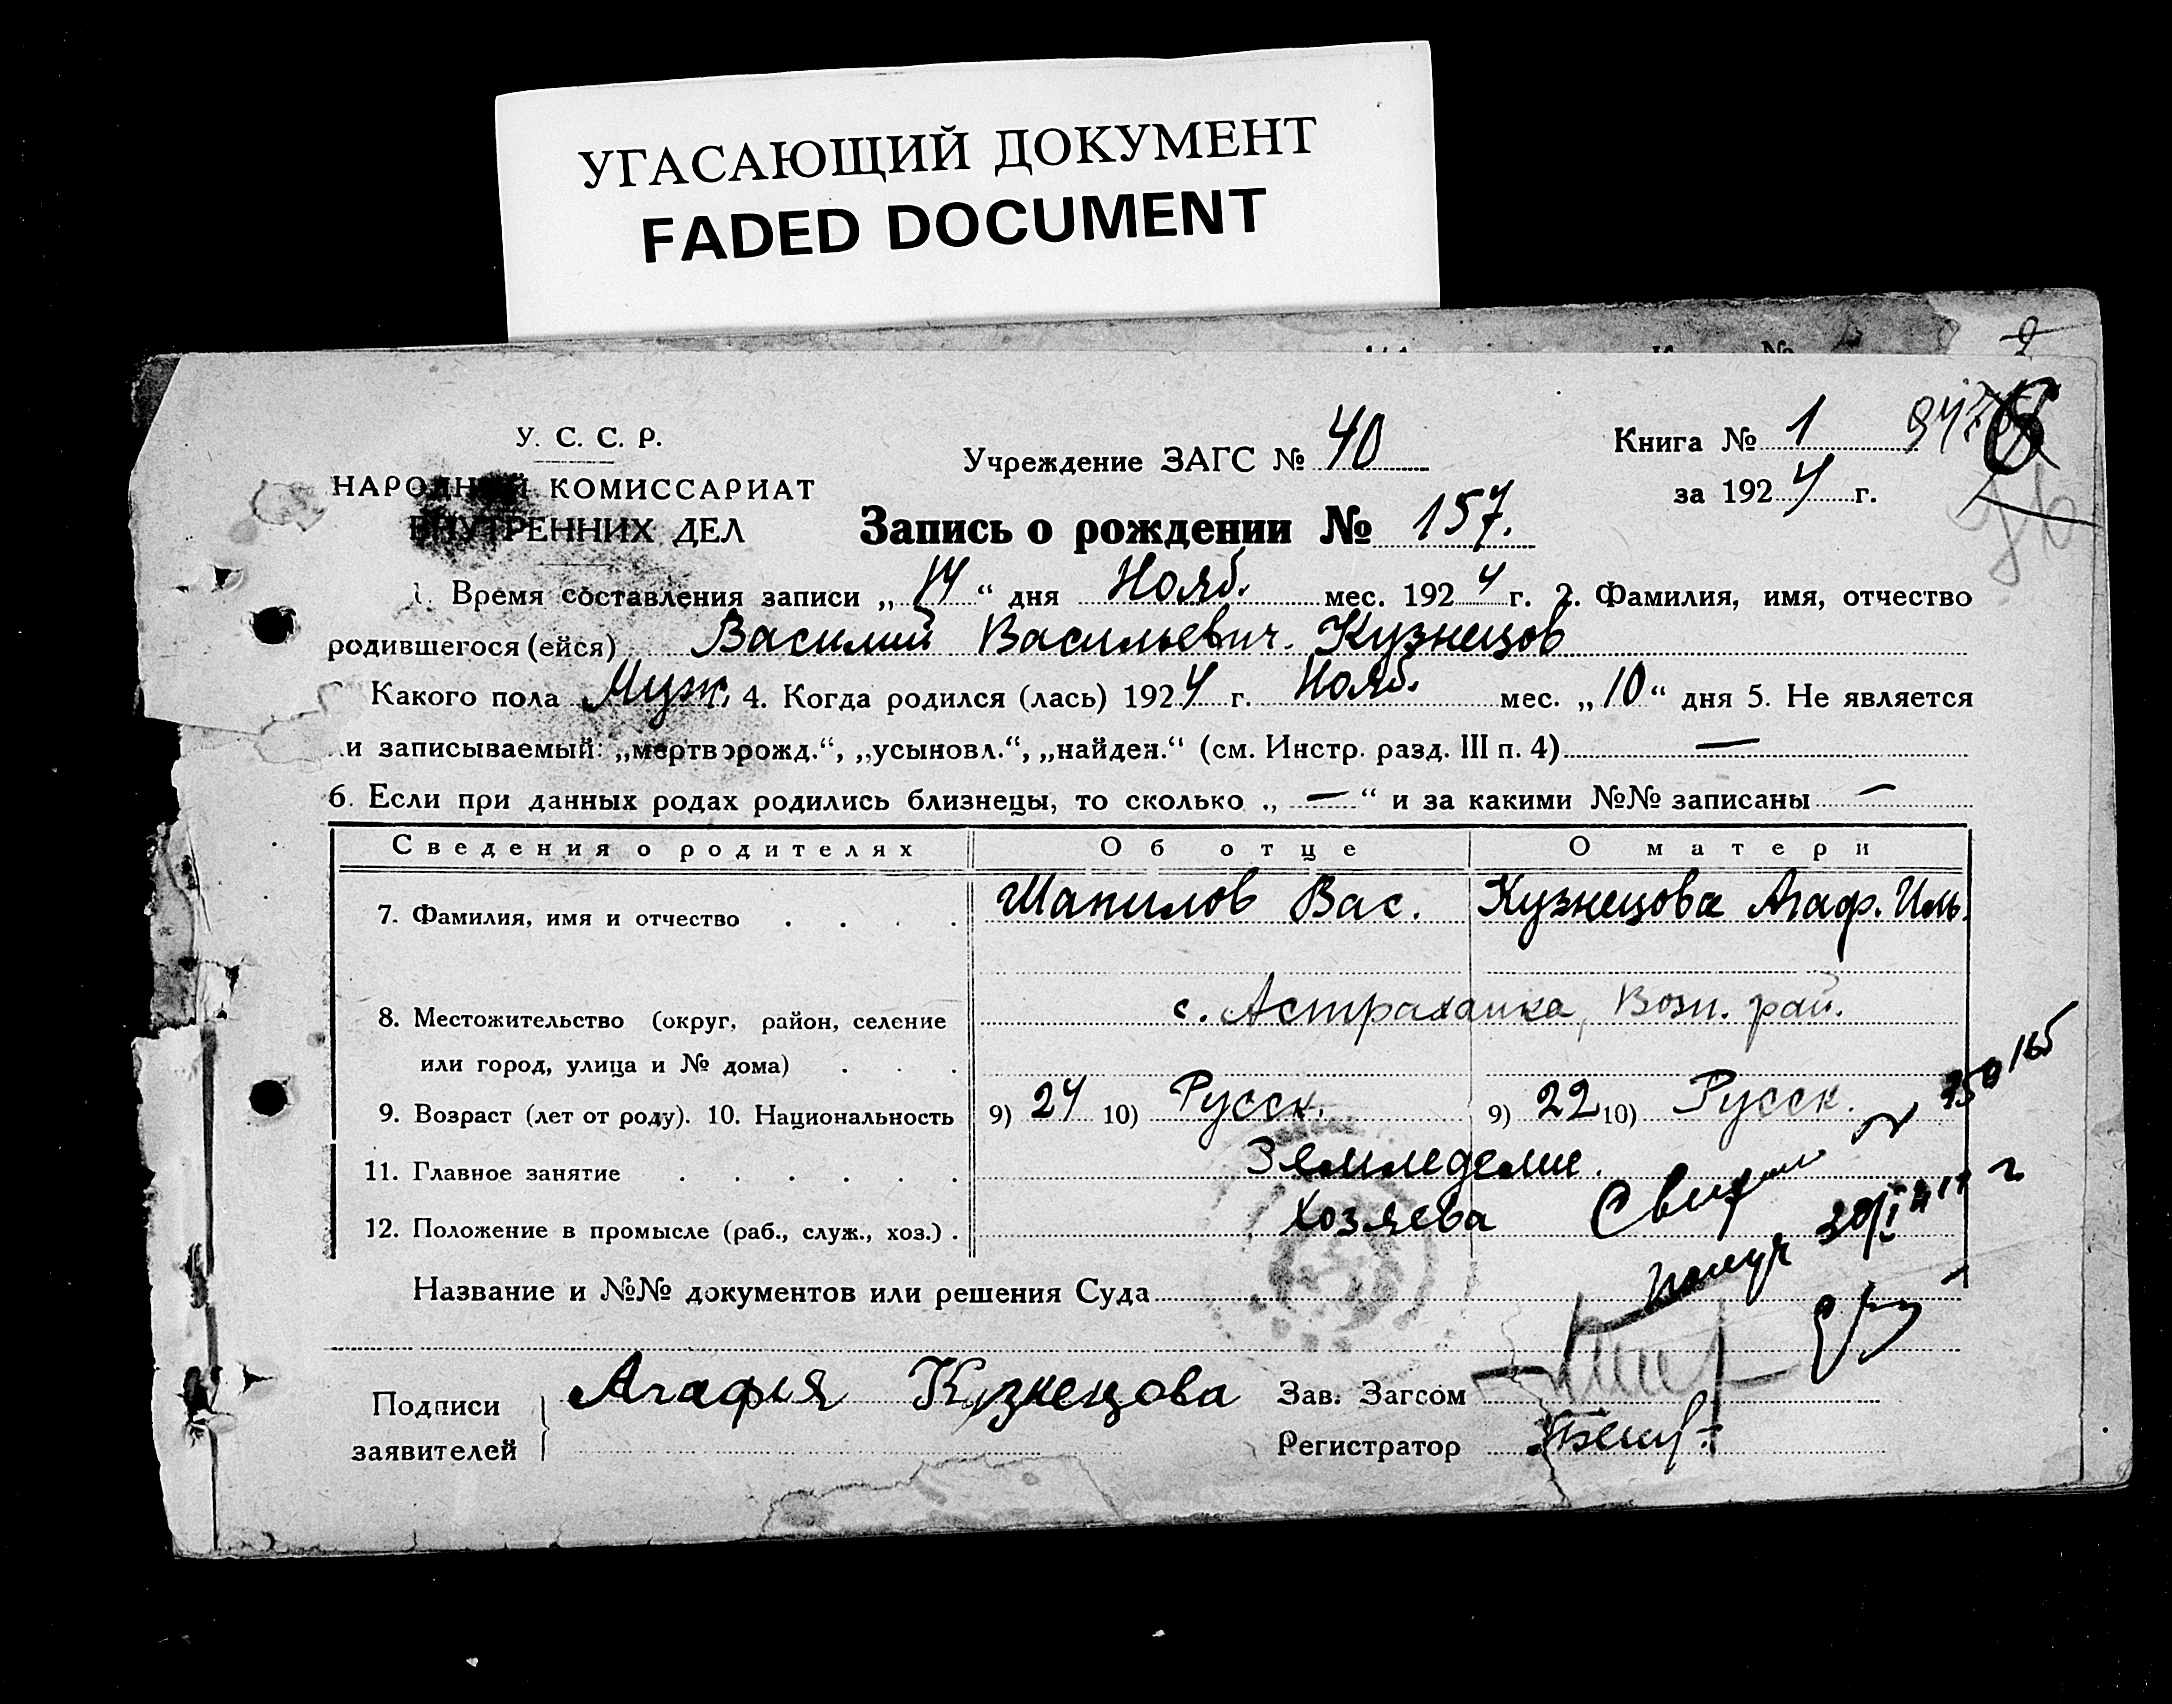 УГАСАЮЩИЙ ДОКУМЕНТ
FADED DOCUMENT
У. С. С. Р.
НАРОДНЫЙ КОМИССАРИАТ
ВНУТРЕННИХ ДЕЛ
Учреждение ЗАГС № 40
Книга № 1
за 1924 г.
Запись о рождении № 157.
1. Время составления записи „14“ дня Нояб. мес. 1924 г. 2. Фамилия, имя, отчество
родившегося (ейся) Василий Васильевич Кузнецов
Какого пола Муж. 4. Когда родился (лась) 1924 г. Нояб. мес. „10“ дня 5. Не является
ли записываемый: „мертворожд.“, „усыновл.“, „найден.“ (см. Инстр. разд. III п. 4) —
6. Если при данных родах родились близнецы, то сколько „—“ и за какими №№ записаны —
Сведения о родителях Об отце О матери
7. Фамилия, имя и отчество . . . . Шапилов Вас. Кузнецова Агаф. Иль.
8. Местожительство (округ, район, селение с. Астраханка, Возн. рай.
или город, улица и № дома) . . .
9. Возраст (лет от роду). 10. Национальность 9) 24 10) Русск. 9) 22 10) Русск.
11. Главное занятие . . . . . . Земледелие.
12. Положение в промысле (раб., служ., хоз.) . Хозяева
Название и №№ документов или решения Суда
Подписи заявителей Агафия Кузнецова
Зав. Загсом
Регистратор